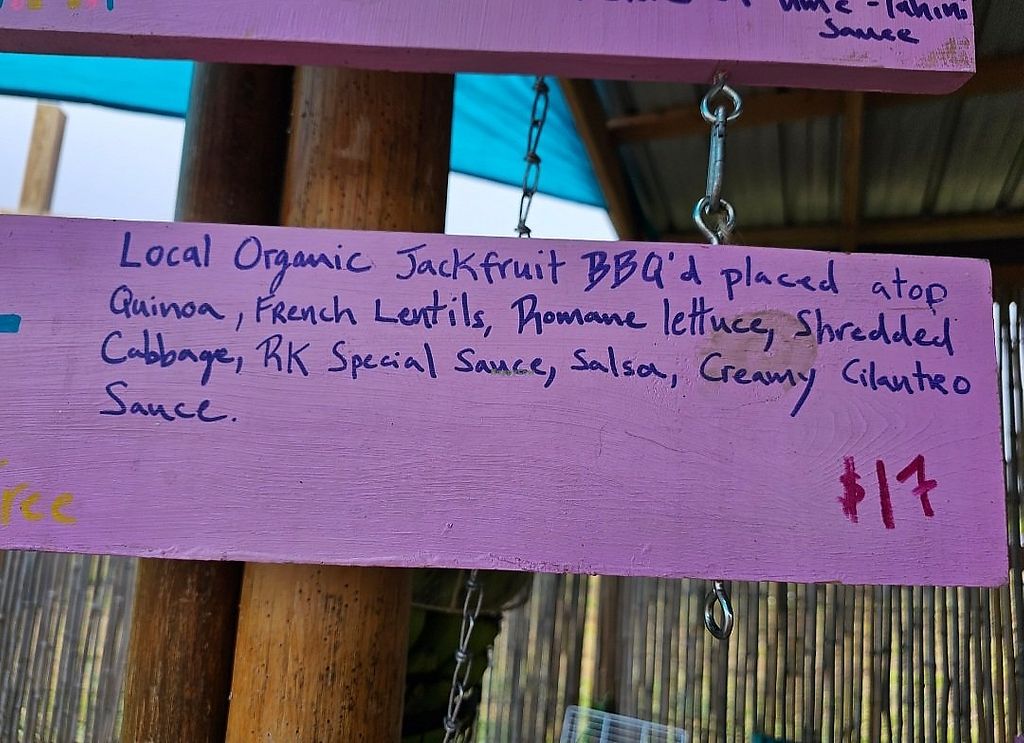 -Tahini
Sauce
Local Organic Jackfruit BBQ'd placed atop
Quinoa, French Lentils, Romane lettuce, Shredded
Cabbage, RK Special Sauce, Salsa, Creamy Cilantro
Sauce.
ree
$17